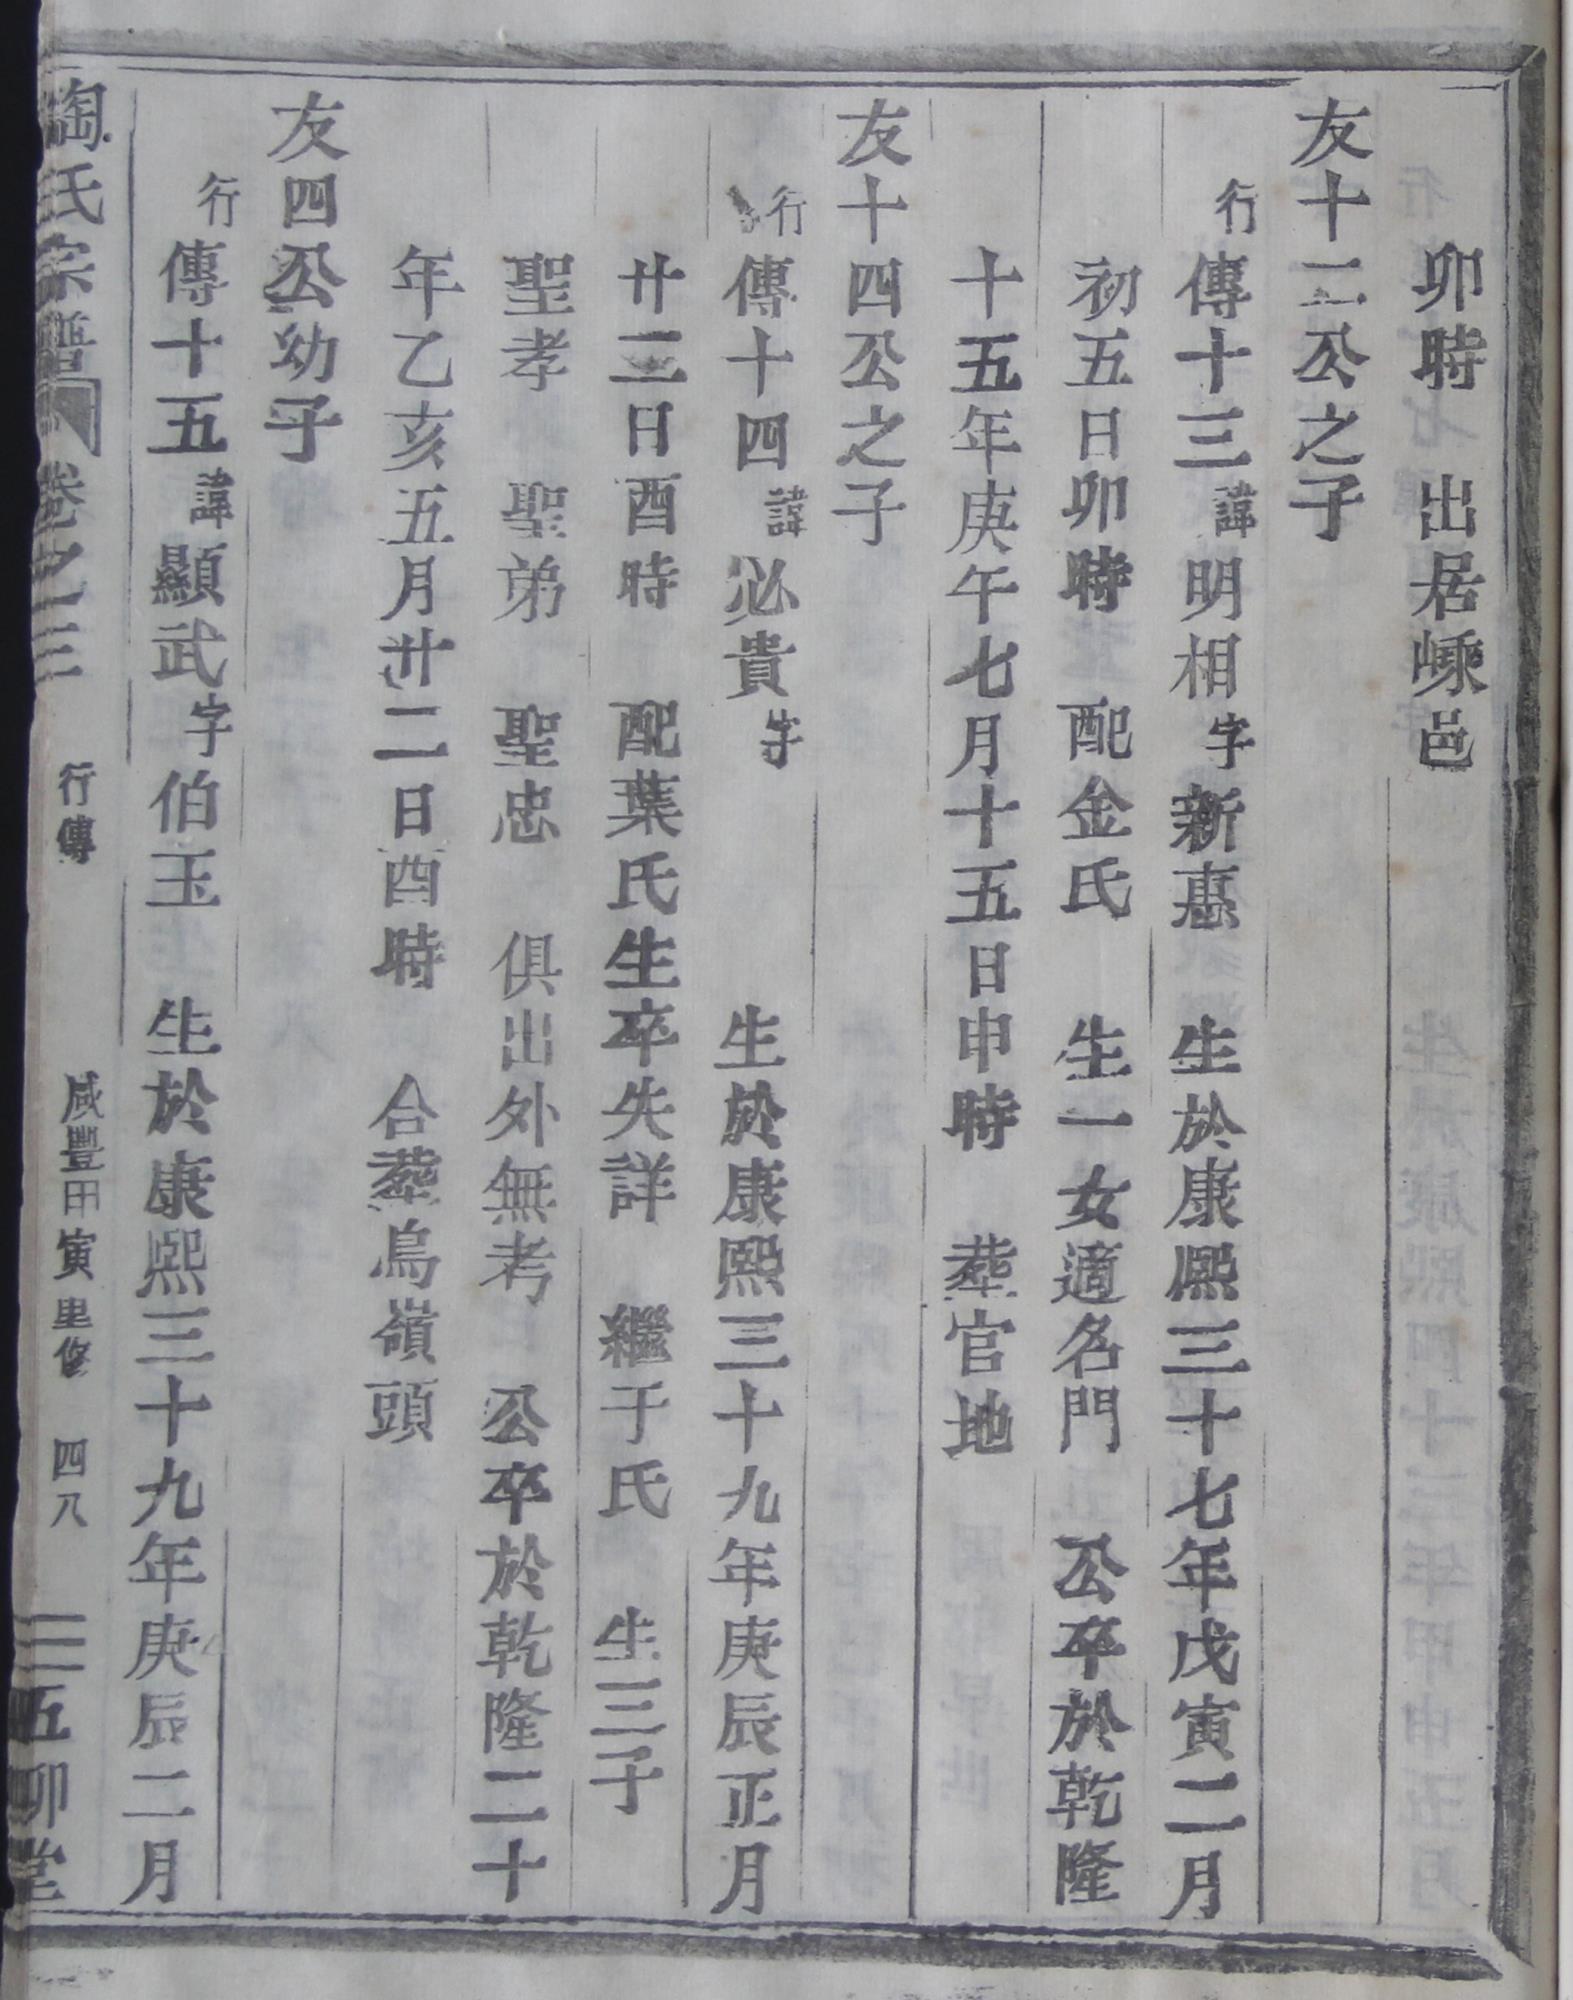 卯時　出居嵊邑
友十二公之子
行傳十三諱明相字新惪　生於康熙三十七年戊寅二月
初五日卯時　配金氏　生一女適名門　公卒於乾隆
十五年庚午七月十五日申時　葬官地
友十四公之子
行傳十四諱必貴字　　　生於康熙三十九年庚辰正月
廿三日酉時　配葉氏生卒失詳　繼于氏　生三子
聖孝　聖弟　聖忠　俱出外無考　公卒於乾隆二十
年乙亥五月廿二日酉時　合葬烏嶺頭
友四公幼子
行傳十五諱顯武字伯玉　生於康熙三十九年庚辰二月
陶氏宗譜　卷之三　行傳　咸豐甲寅重修　四八　五柳堂